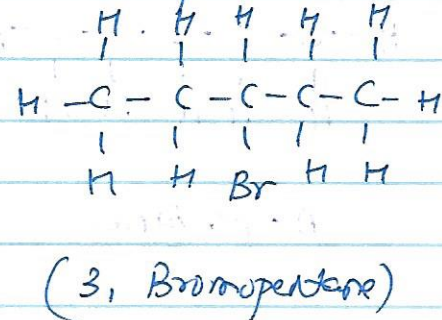 H H H H H
H - C - C - C - C - C - H
H H Br H H
(3, Bromopentane)